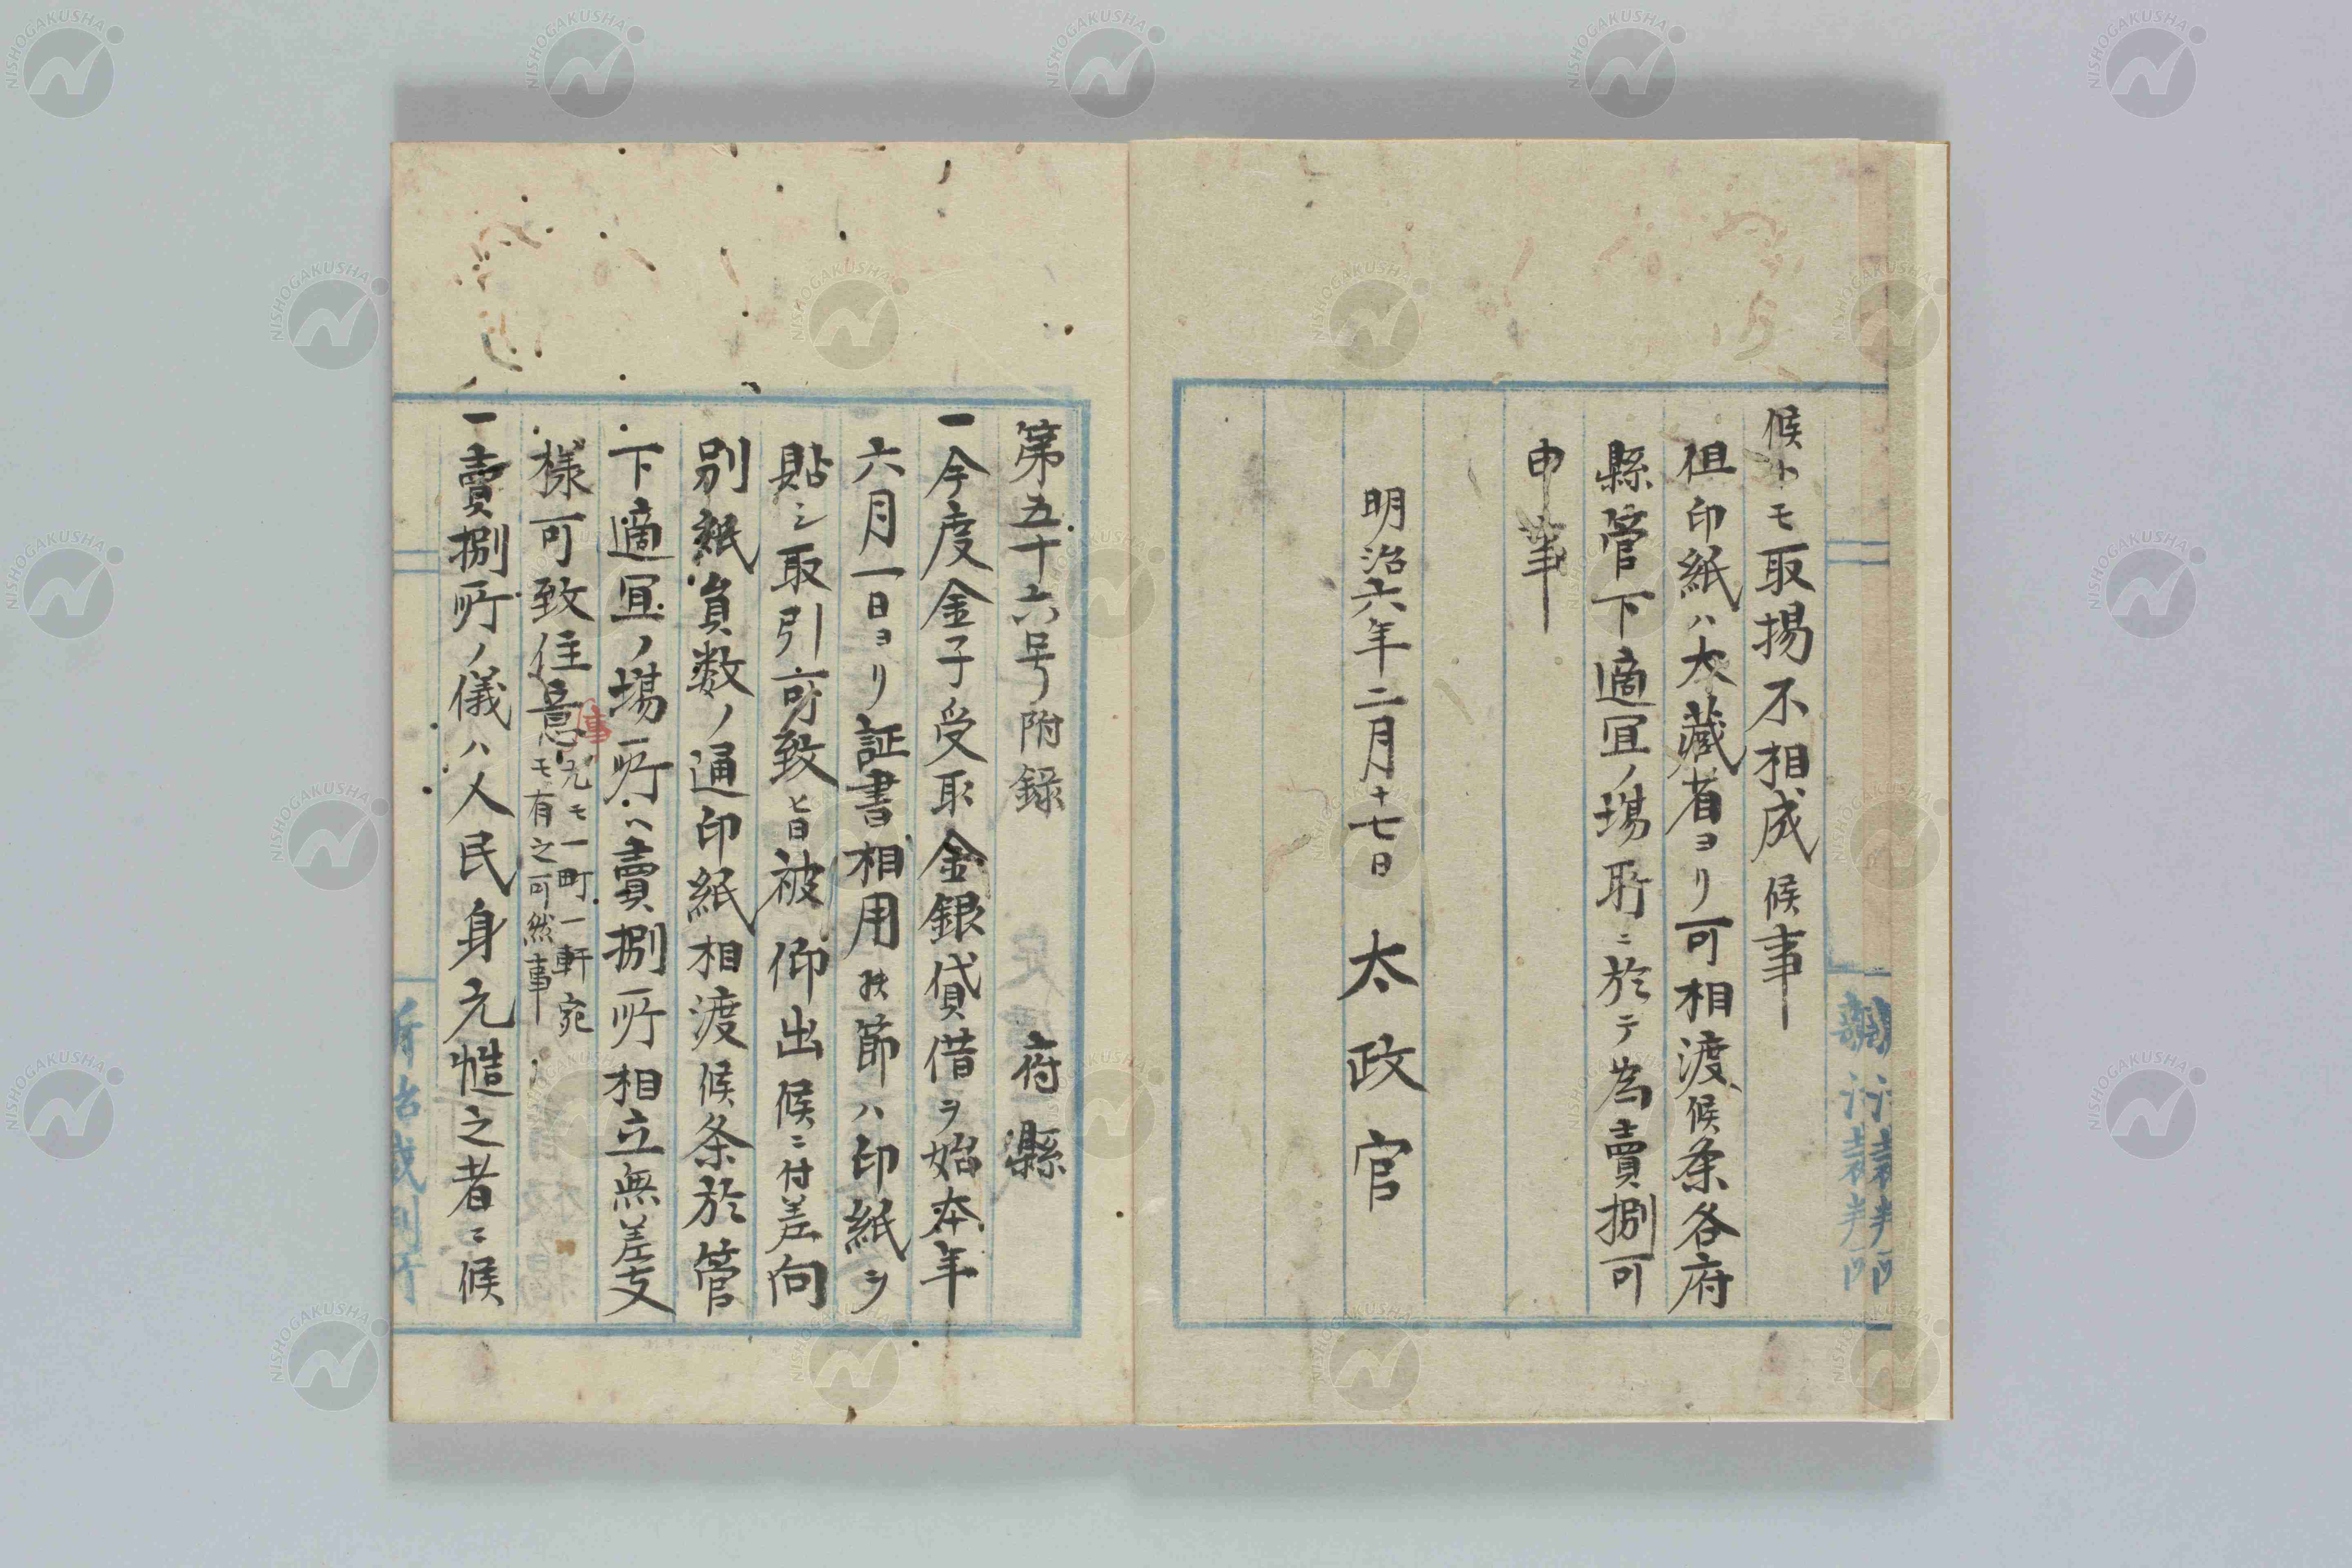 候トモ取揚不相成候事
但印紙ハ大藏省ヨリ可相渡候条各府
縣管下適宜ノ場所ニ於テ為賣捌可
申事
明治六年二月十七日 太政官
第五十六号附録 府縣
一今度金子受取金銀貸借ヲ始本年
六月一日ヨリ証書相用候節ハ印紙ヲ
貼シ取引可致旨被仰出候ニ付差向
別紙員数ノ通印紙相渡候条於管
下適宜ノ場所ヘ賣捌所相立無差支
様可致注意尤モ一町一軒宛
モ有之可然事
事
一賣捌所ノ儀ハ人民身元慥之者ニ候
NISHOGAKUSHA